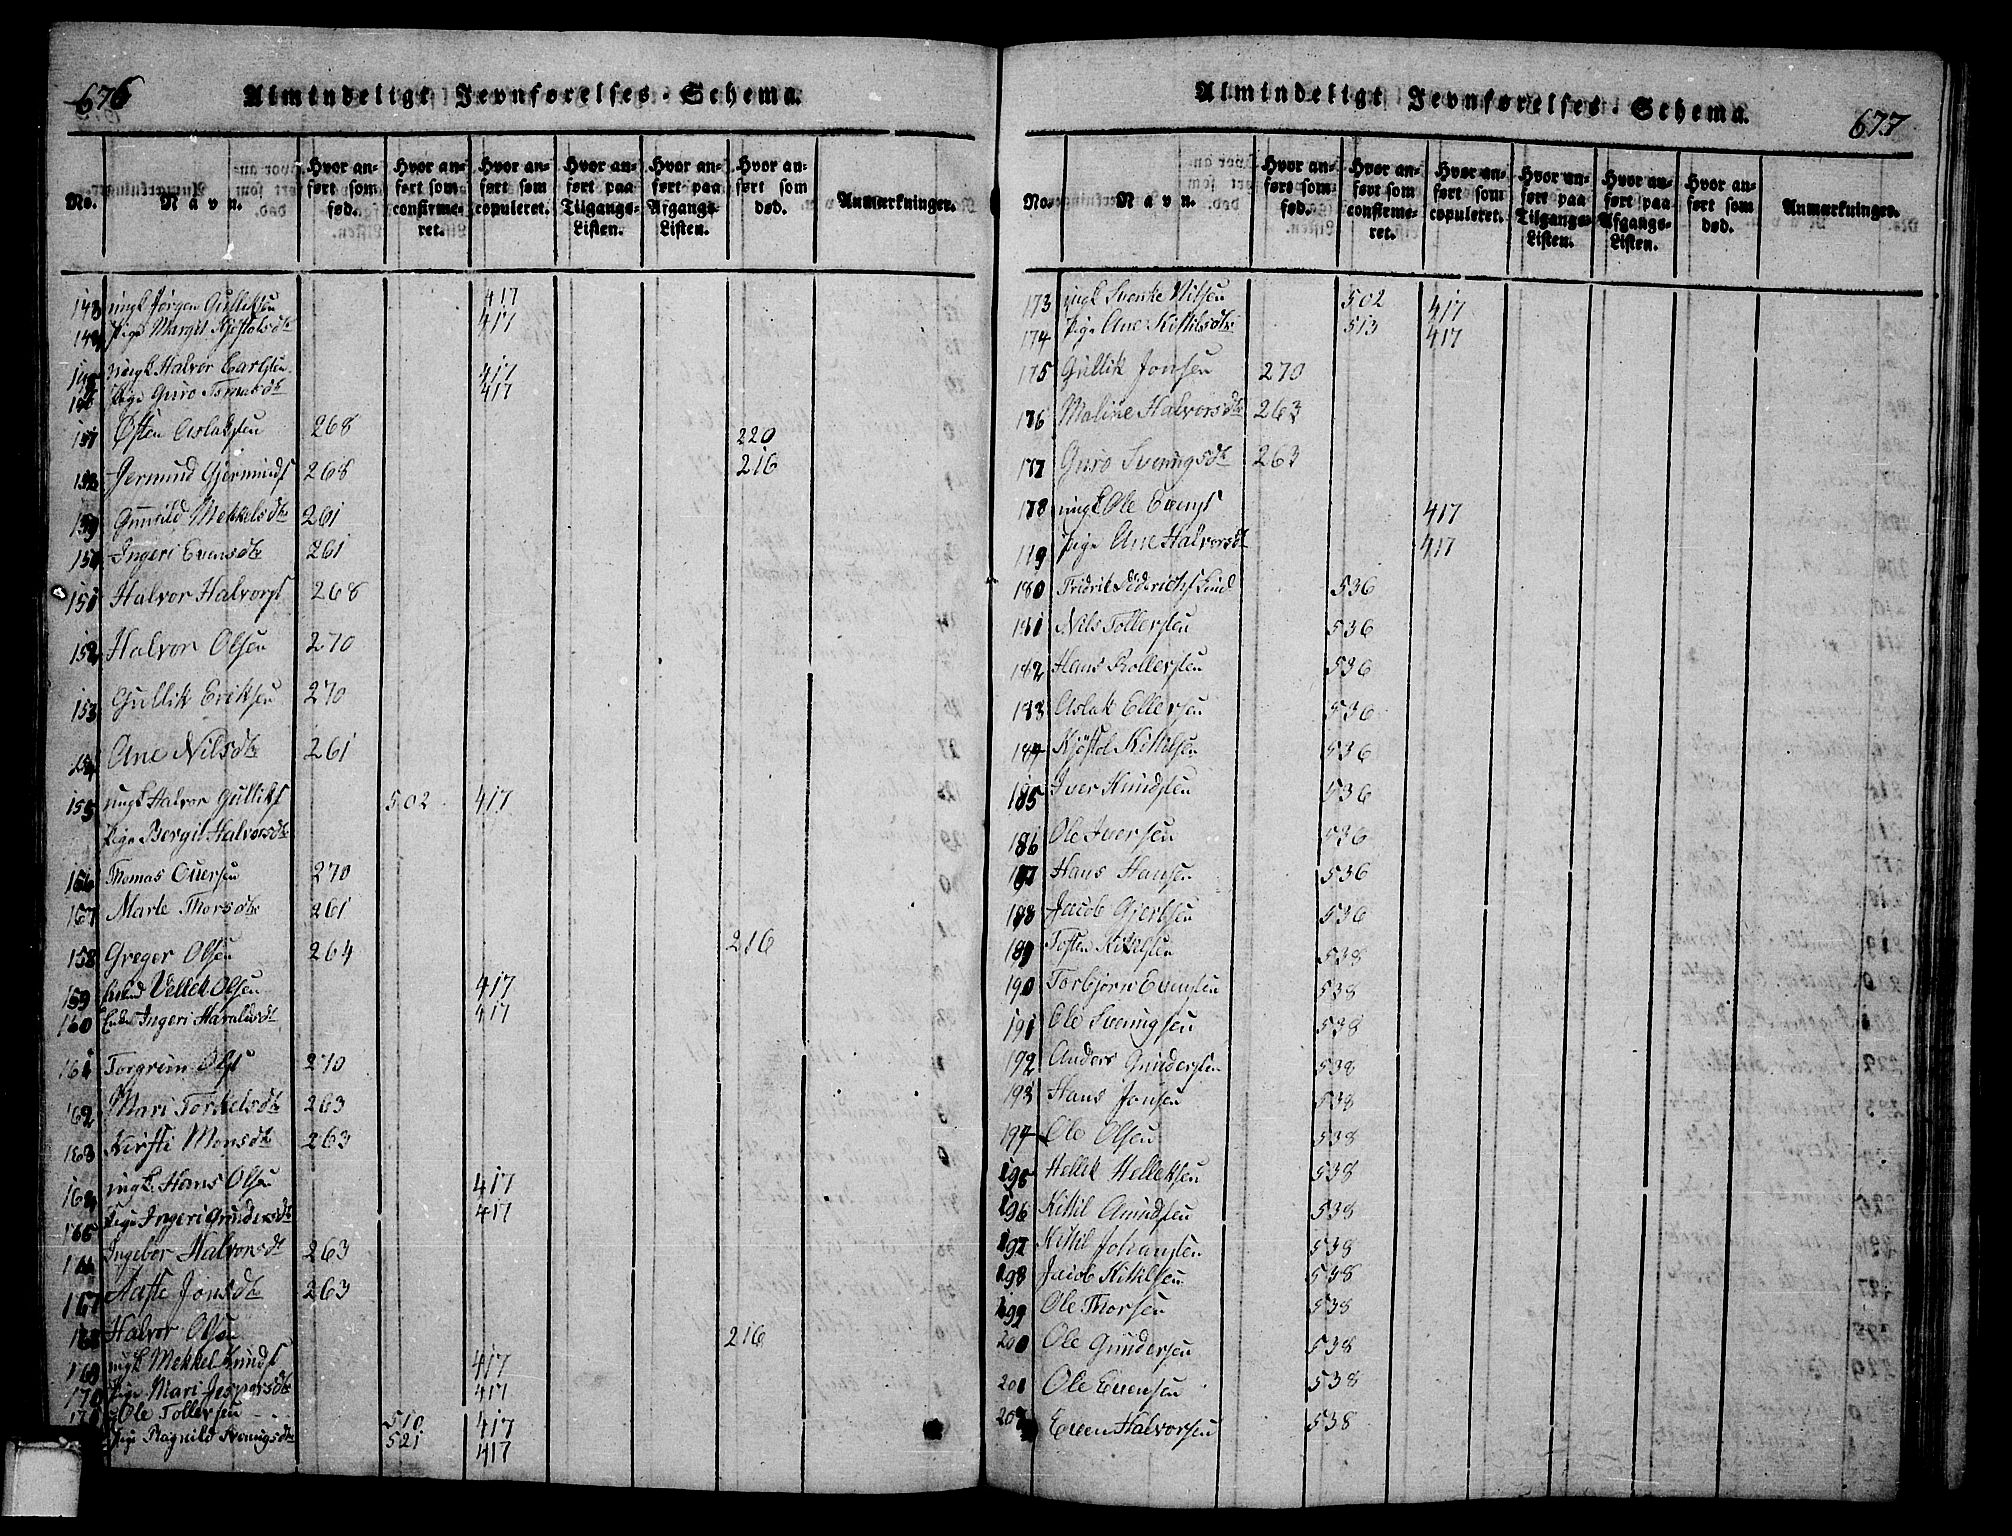 676
Almindeligt Jevnførelses-Schema.
No. Navn. Hvor anført som fød. Hvor anført som confirmeret. Hvor anført som copuleret. Hvor anført paa Tilgangs-Listen. Hvor anført paa Afgangs-Listen. Hvor anført som død. Anmærkninger.
143 ungk Jørgen Gulliksen 417
144 Pige Margit Kjøstolsdtr 417
145 ungk Halvor Carlsen 417
146 Pige Guro Tomasdtr 417
157 Østen Aslaksen 268 220
158 Germund Gjermunds 268 216
159 Gunnild Mekkelsdtr 261
150 Ingeri Evensdtr 261
151 Halvor Halvors 268
152 Halvor Olsen 270
153 Gullik Eriksen 270
154 Ane Nilsdtr 261
155 ungk Halvor Gulliks 502 417
Pige Bergit Halvorsdtr
156 Thomas Oversen 270
157 Marte Thorsdtr 261
158 Greger Olsen 264 216
159 Vellek Olsen 417
160 Enke Ingeri Haraldsdtr 417
161 Torgrim Ols 270
162 Mari Torkelsdtr 263
163 Kirsti Monsdtr 263
164 ungk Hans Olsen 417
165 Pige Ingeri Gundersdtr 417
166 Ingebor Halvorsdtr 263
167 Aaste Jonsdtr 263
168 Halvor Olsen 216
169 ungk Mekkel Knuds 417
170 Pige Mari Jespersdtr 417
171 Ole Tollersen 510 417
Pige Ragnild Svenugsdtr 521 417
677
Almindeligt Jevnførelses-Schema.
No. Navn. Hvor anført som fød. Hvor anført som confirmeret. Hvor anført som copuleret. Hvor anført paa Tilgangs-Listen. Hvor anført paa Afgangs-Listen. Hvor anført som død. Anmærkninger.
173 ungk Svenke Nilsen 502 417
174 Pige Ane Kittilsdtr 513 417
175 Gullik Jonsen 270
176 Maline Halvorsdtr 263
177 Guro Svenugsdtr 263
178 ungk Ole Evens 417
179 Pige Ane Halvorsdtr 417
180 Fridrik Diderichs Lind 536
181 Nils Tollersen 536
182 Hans Rollefsen 536
183 Aslak Ellefsen 536
184 Kjøstol Kittilsen 536
185 Iver Knudsen 536
186 Ole Iversen 536
187 Hans Hansen 536
188 Jacob Gjertsen 536
189 Tosten Kittilsen 538
190 Torbjørn Evensen 538
191 Ole Svenugsen 538
192 Anders Gundersen 538
193 Hans Jonsen 538
194 Ole Olsen 538
195 Hellik Helleksen 538
196 Kittil Amundsen 538
197 Kittil Johansen 538
198 Jacob Kittilsen 538
199 Ole Thorsen 538
200 Ole Gundersen 538
201 Ole Evensen 538
202 Even Halvorsen 538